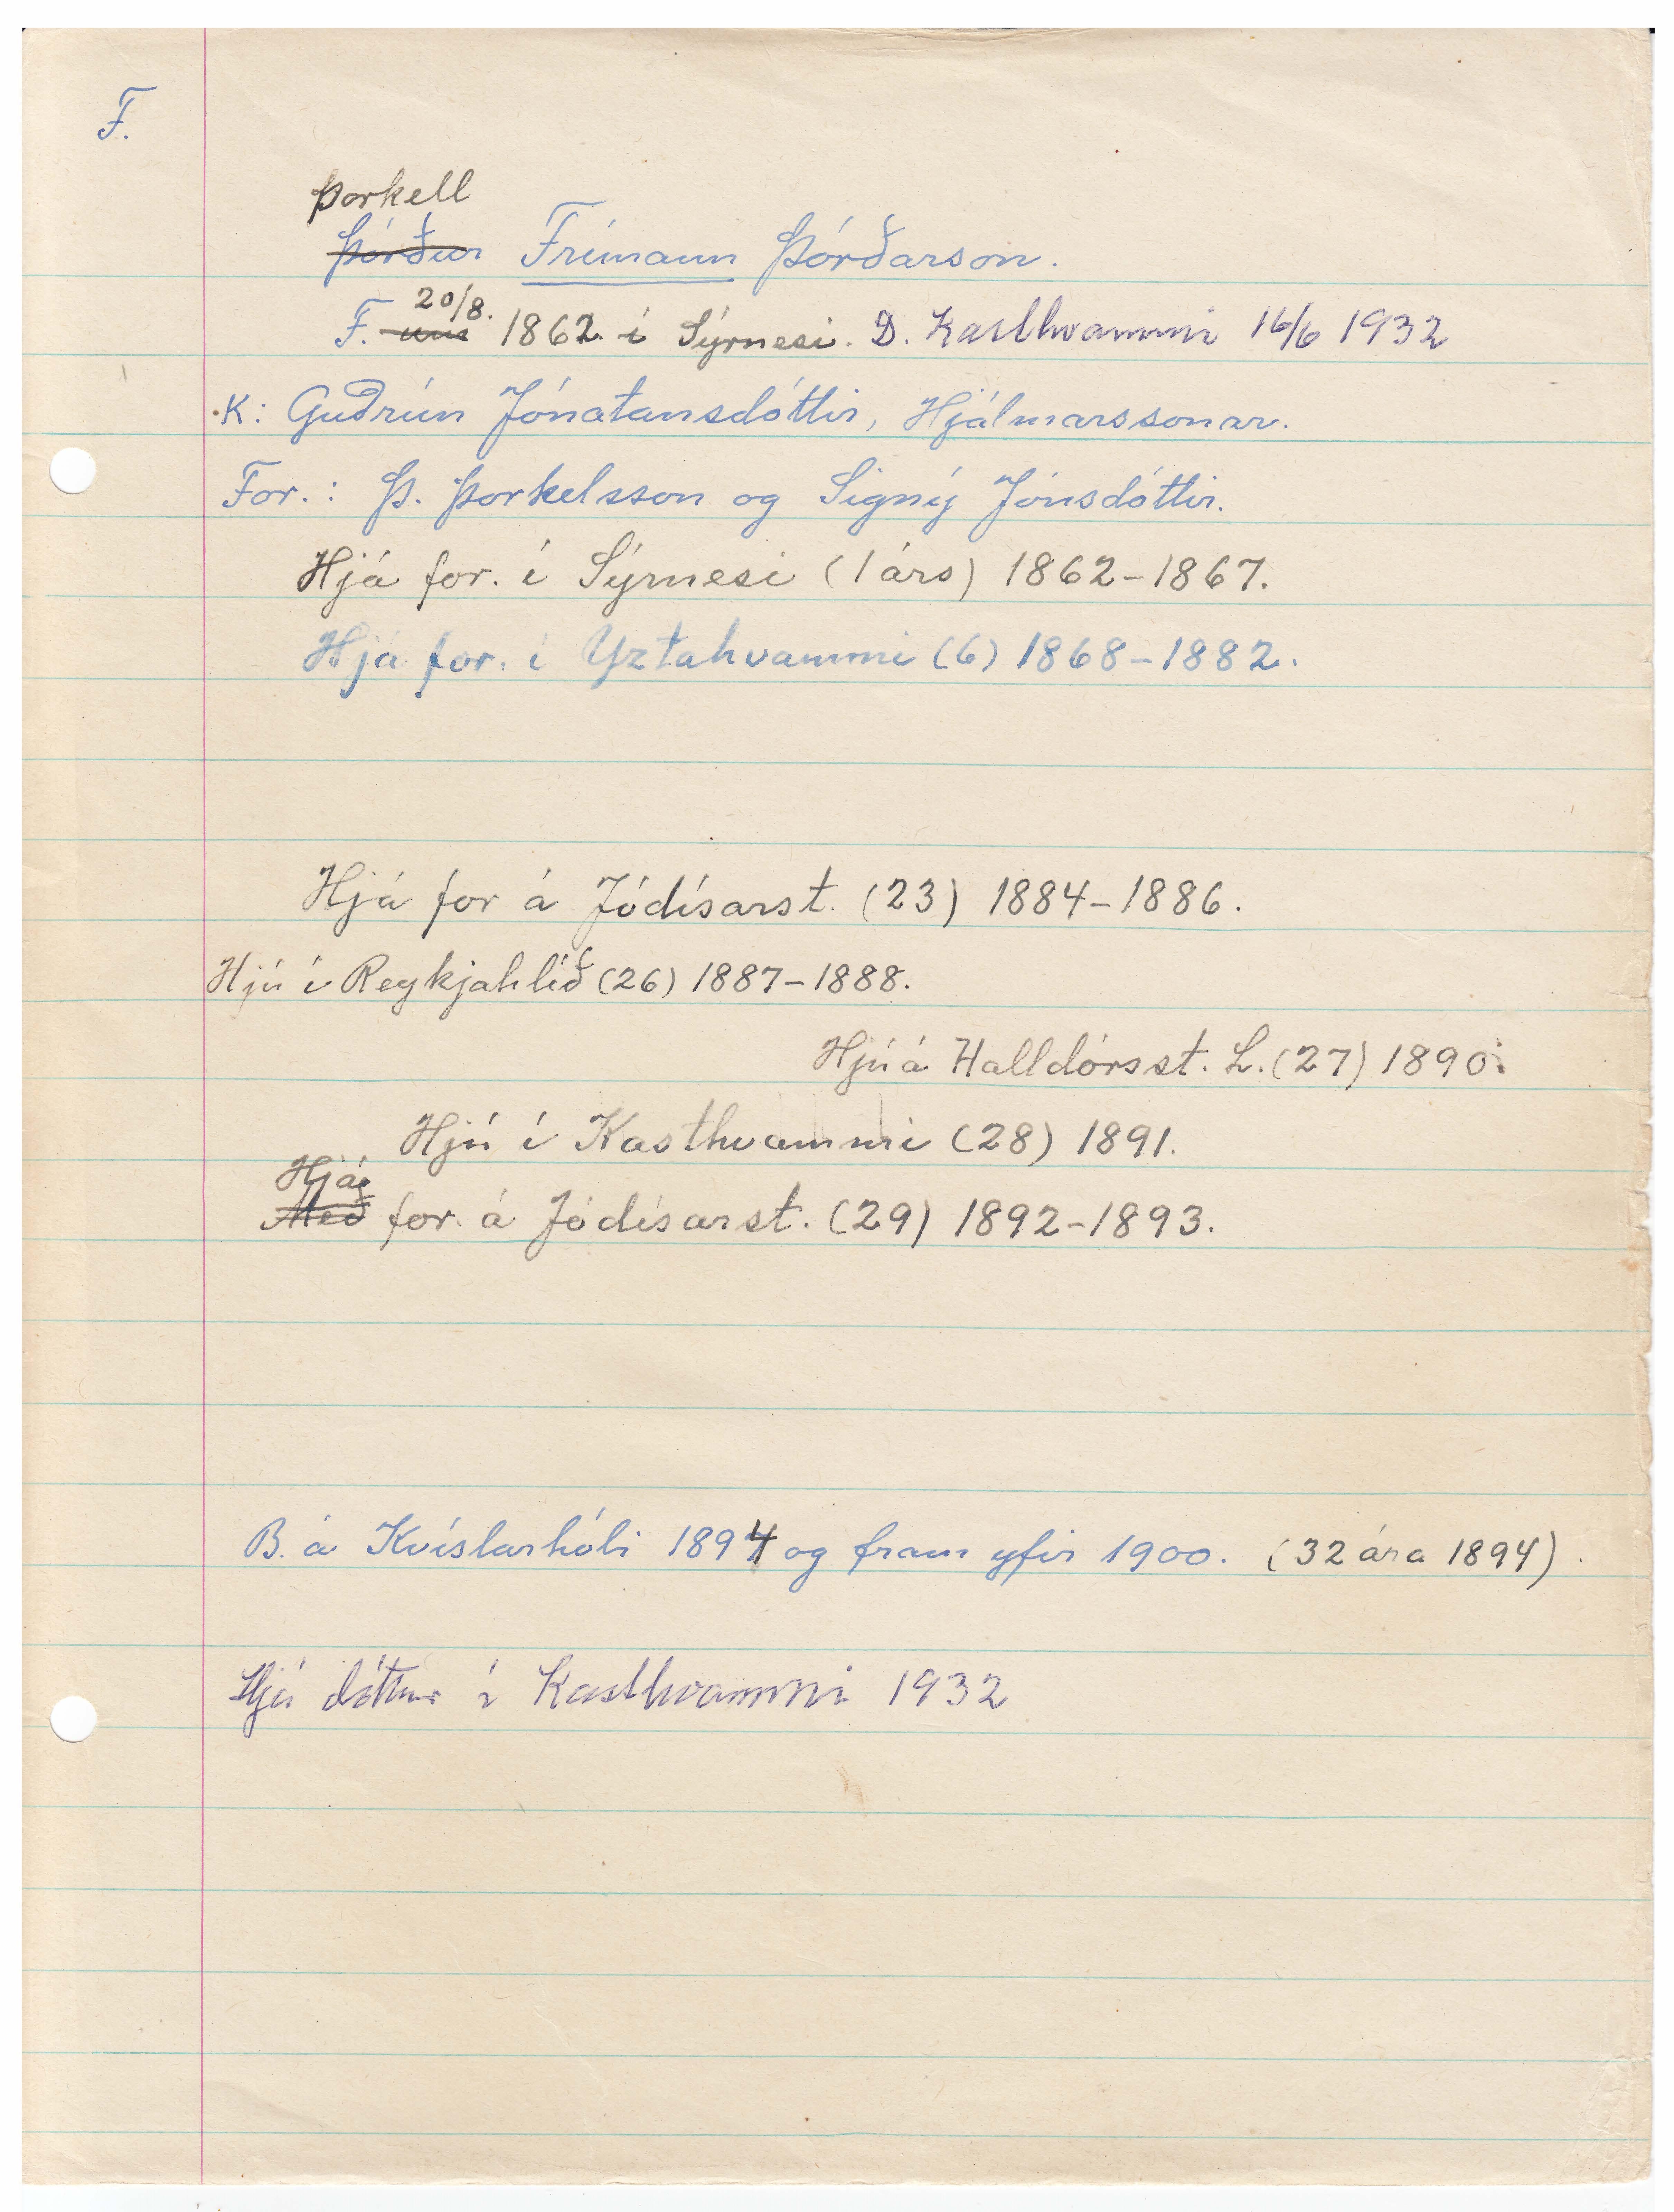 F.
Þorkell
Þórður Frímann Þórðarson.
20/8.
F. um 1862 í Sýrnesi. D. Kasthvammi 16/6 1932
K: Guðrún Jónatansdóttir, Hjálmarssonar.
For.: Þ. Þorkelsson og Signý Jónsdóttir.
Hjá for. í Sýrnesi (1 árs) 1862-1867.
Hjá for. í Yztahvammi (6) 1868-1882.
Hjá for á Jódísarst. (23) 1884-1886.
Hjú í Reykjahlíð (26) 1887-1888.
Hjú á Halldórsst. L. (27) 1890.
Hjú í Kasthvammi (28) 1891.
Hjá
Með for. á Jódísarst. (29) 1892-1893.
B. á Kvíslarhóli 1894 og fram yfir 1900. (32 ára 1894).
Hjá dóttur í Kasthvammi 1932